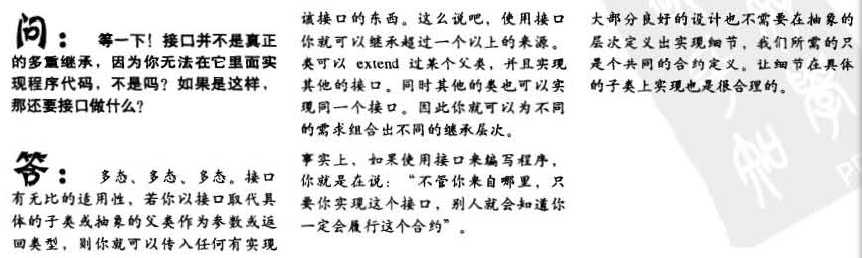 问： 等一下！接口并不是真正
的多重继承，因为你无法在它里面实
现程序代码，不是吗？如果是这样，
那还要接口做什么？
答： 多态、多态、多态。接口
有无比的适用性，若你以接口取代具
体的子类或抽象的父类作为参数或返
回类型，则你就可以传入任何有实现
该接口的东西。这么说吧，使用接口
你就可以继承超过一个以上的来源。
类可以 extend 过某个父类，并且实现
其他的接口。同时其他的类也可以实
现同一个接口。因此你就可以为不同
的需求组合出不同的继承层次。
事实上，如果使用接口来编写程序，
你就是在说：“不管你来自哪里，只
要你实现这个接口，别人就会知道你
一定会履行这个合约”。
大部分良好的设计也不需要在抽象的
层次定义出实现细节，我们所需的只
是个共同的合约定义。让细节在具体
的子类上实现也是很合理的。